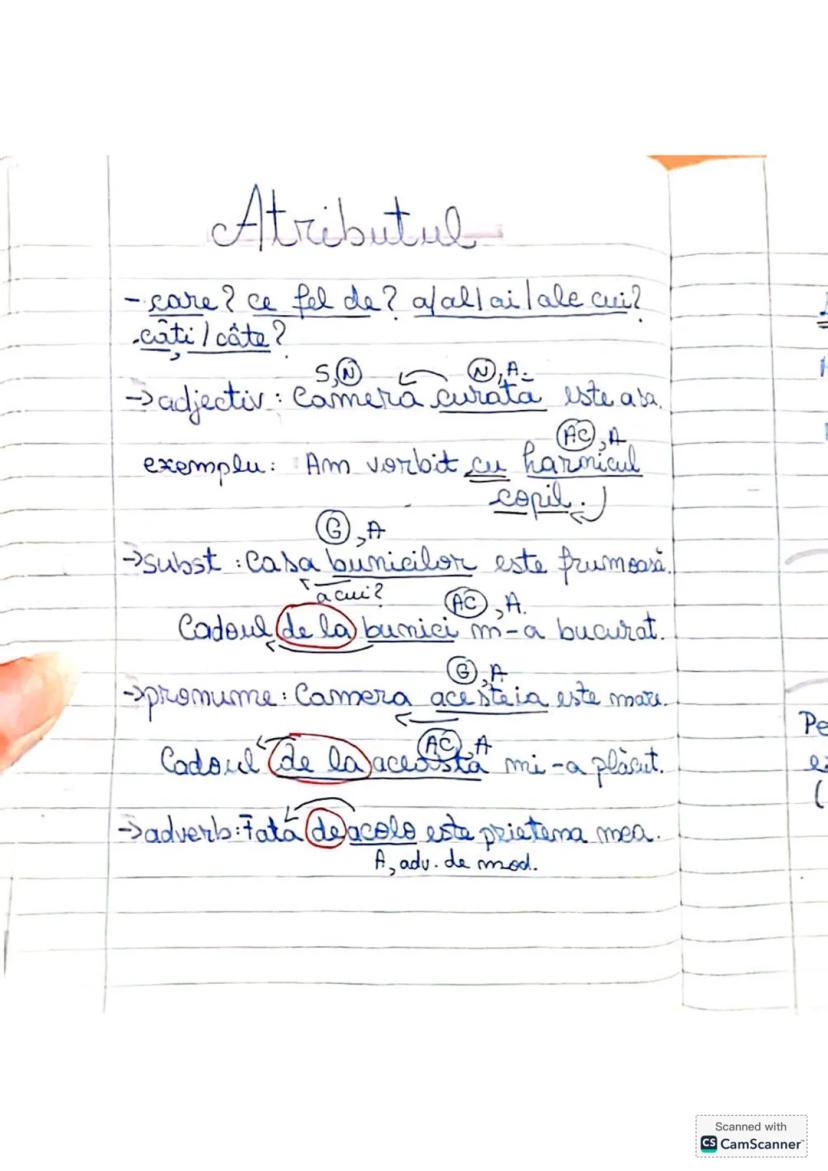 Atributul
- care? ce fel de? a/al/ai/ale cui?
câți/câte?
S, N N, A.
→adjectiv: Camera curată este a sa.
AC, A
exemplu: Am vorbit cu harnicul
copil.
G, A
→subst: Casa bunicilor este frumoasă.
a cui?
AC, A.
Cadoul de la bunici m-a bucurat.
G, A
→pronume: Camera acesteia este mare.
AC, A
Cadoul de la aceasta mi-a plăcut.
→adverb: Fata de acolo este prietena mea.
A, adv. de mod.
Pe
Scanned with
CS CamScanner